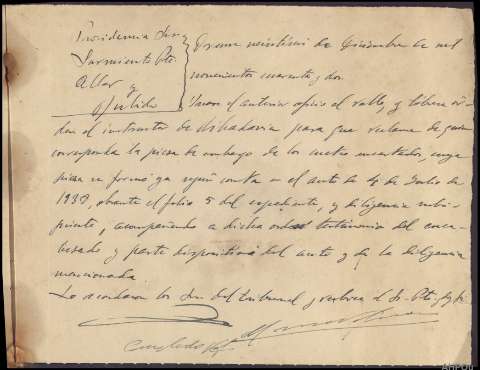 Providencia Sres
Sarmiento Pte.
Allar
y
Pulido
Orense veintiseis de Diciembre de mil
novecientos cuarenta y dos.
el anterior oficio al rollo, y líbrese ór-
den al instructor de Ribadavia para que reclame de quien
corresponda la pieza de embargo de los encartados, cuya
pieza se formó ya según consta en el auto de 4 de Julio de
obrante al folio 5 del expediente, y diligencia subsi-
guiente, acompañando a dicha orden testimonio del enca-
bezado y parte dispositiva del auto y de la diligencia
mencionada.
Lo acordaron los Sres. del Tribunal y rubrica el Sr. Pte.
Cumplido
AHPOU